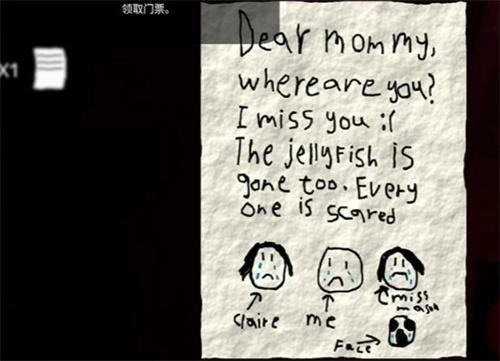 领取门票。
X1
Dear mommy,
where are you?
I miss you :(
The jellyfish is
gone too. Every
one is scared
claire
me
miss
mason
Face